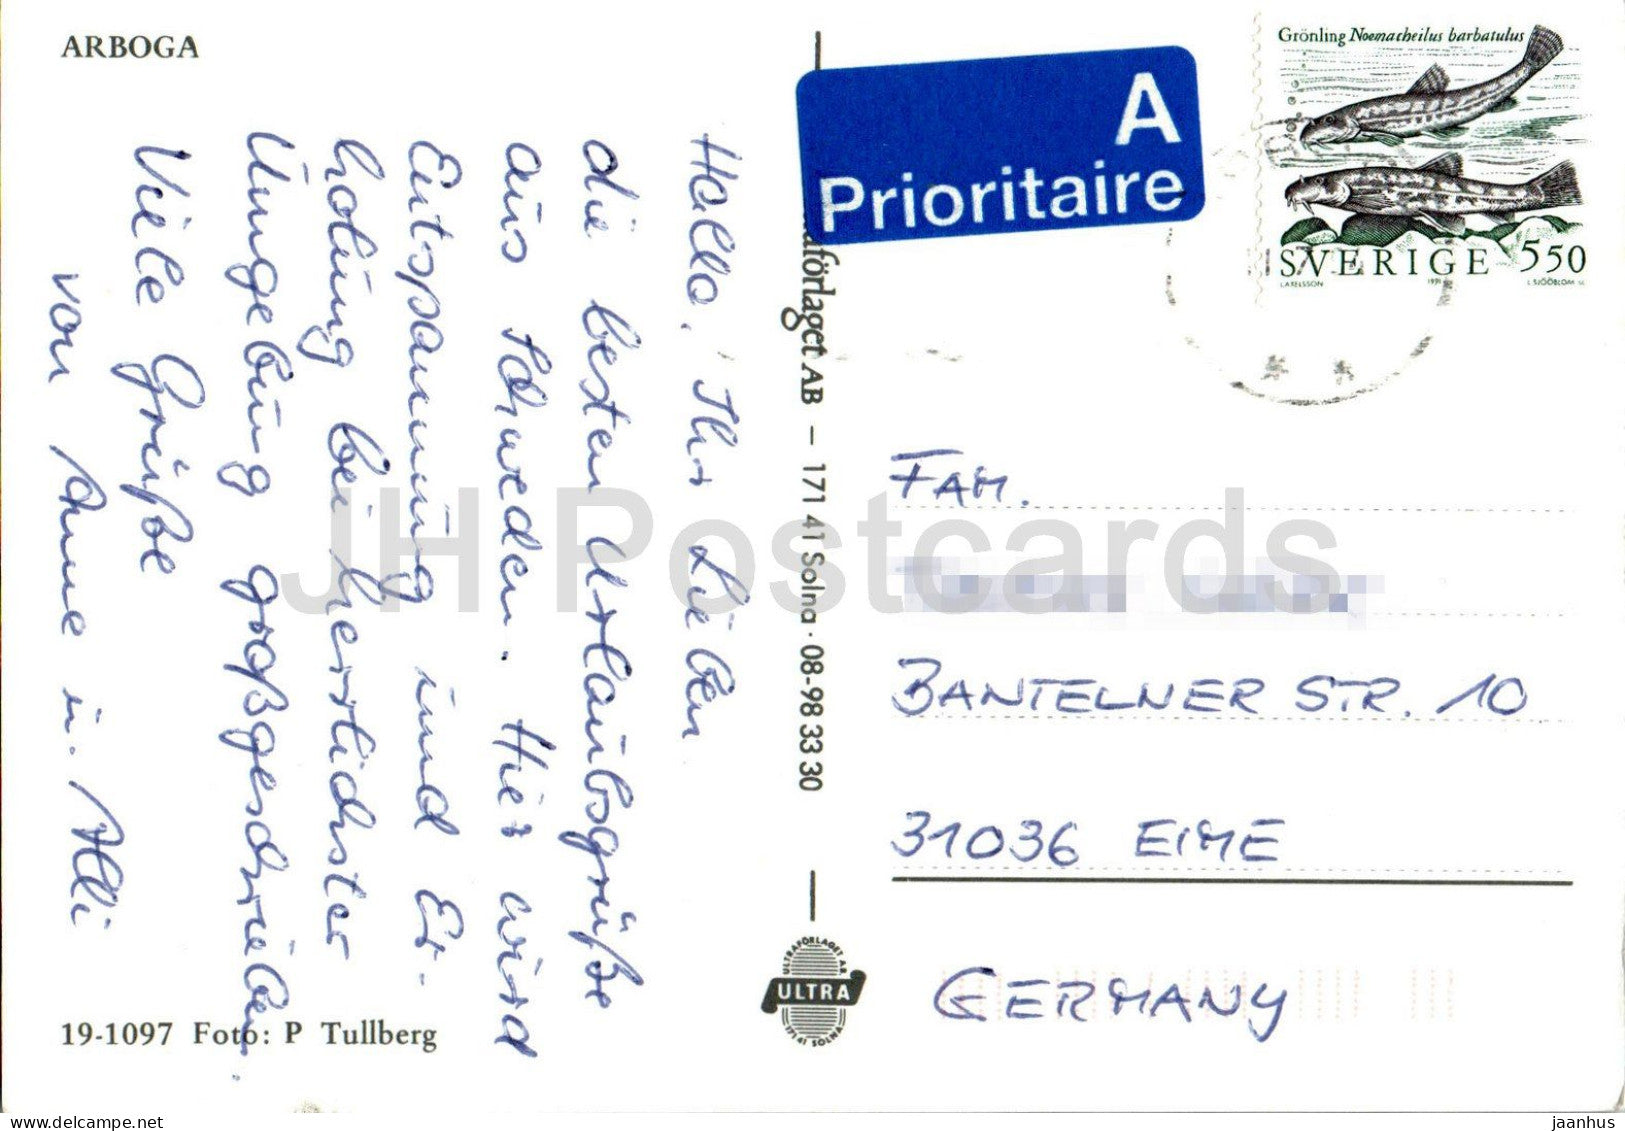 ARBOGA
Hallo, Ihr Lieben
die besten Urlaubsgrüße
aus Schweden. Hier wird
Entspannung und Er-
holung bei herrlichster
Umgebung großgeschrieben.
Viele Grüße
von Anne u. Alli
19-1097 Foto: P Tullberg
raförlaget AB – 171 41 Solna · 08-98 33 30
ULTRAFÖRLAGET AB
ULTRA
171 41 SOLNA
A
Prioritaire
Grönling Noemacheilus barbatulus
SVERIGE 550
L AXELSSON 1991 L SJÖÖBLOM SC
FAM.
BANTELNER STR. 10
31036 EIME
GERMANY
JH Postcards
delcampe.net
jaanhus